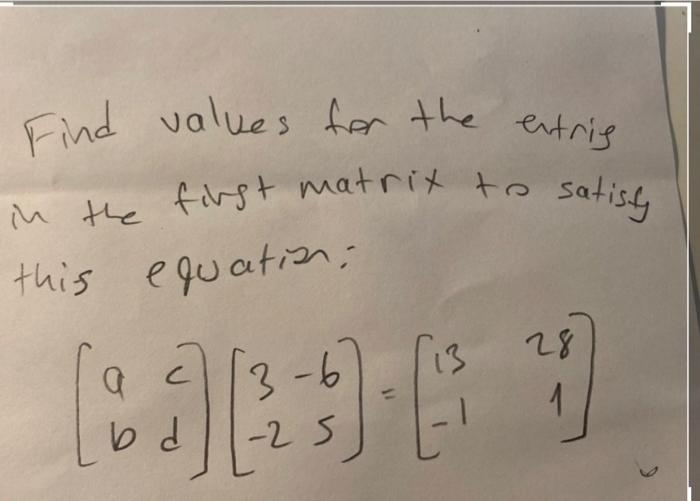 Find values for the entris
in the first matrix to satisfy
this equation:
[a c] [3 -6] = [13 28]
[b d] [-2 5] [-1 1]